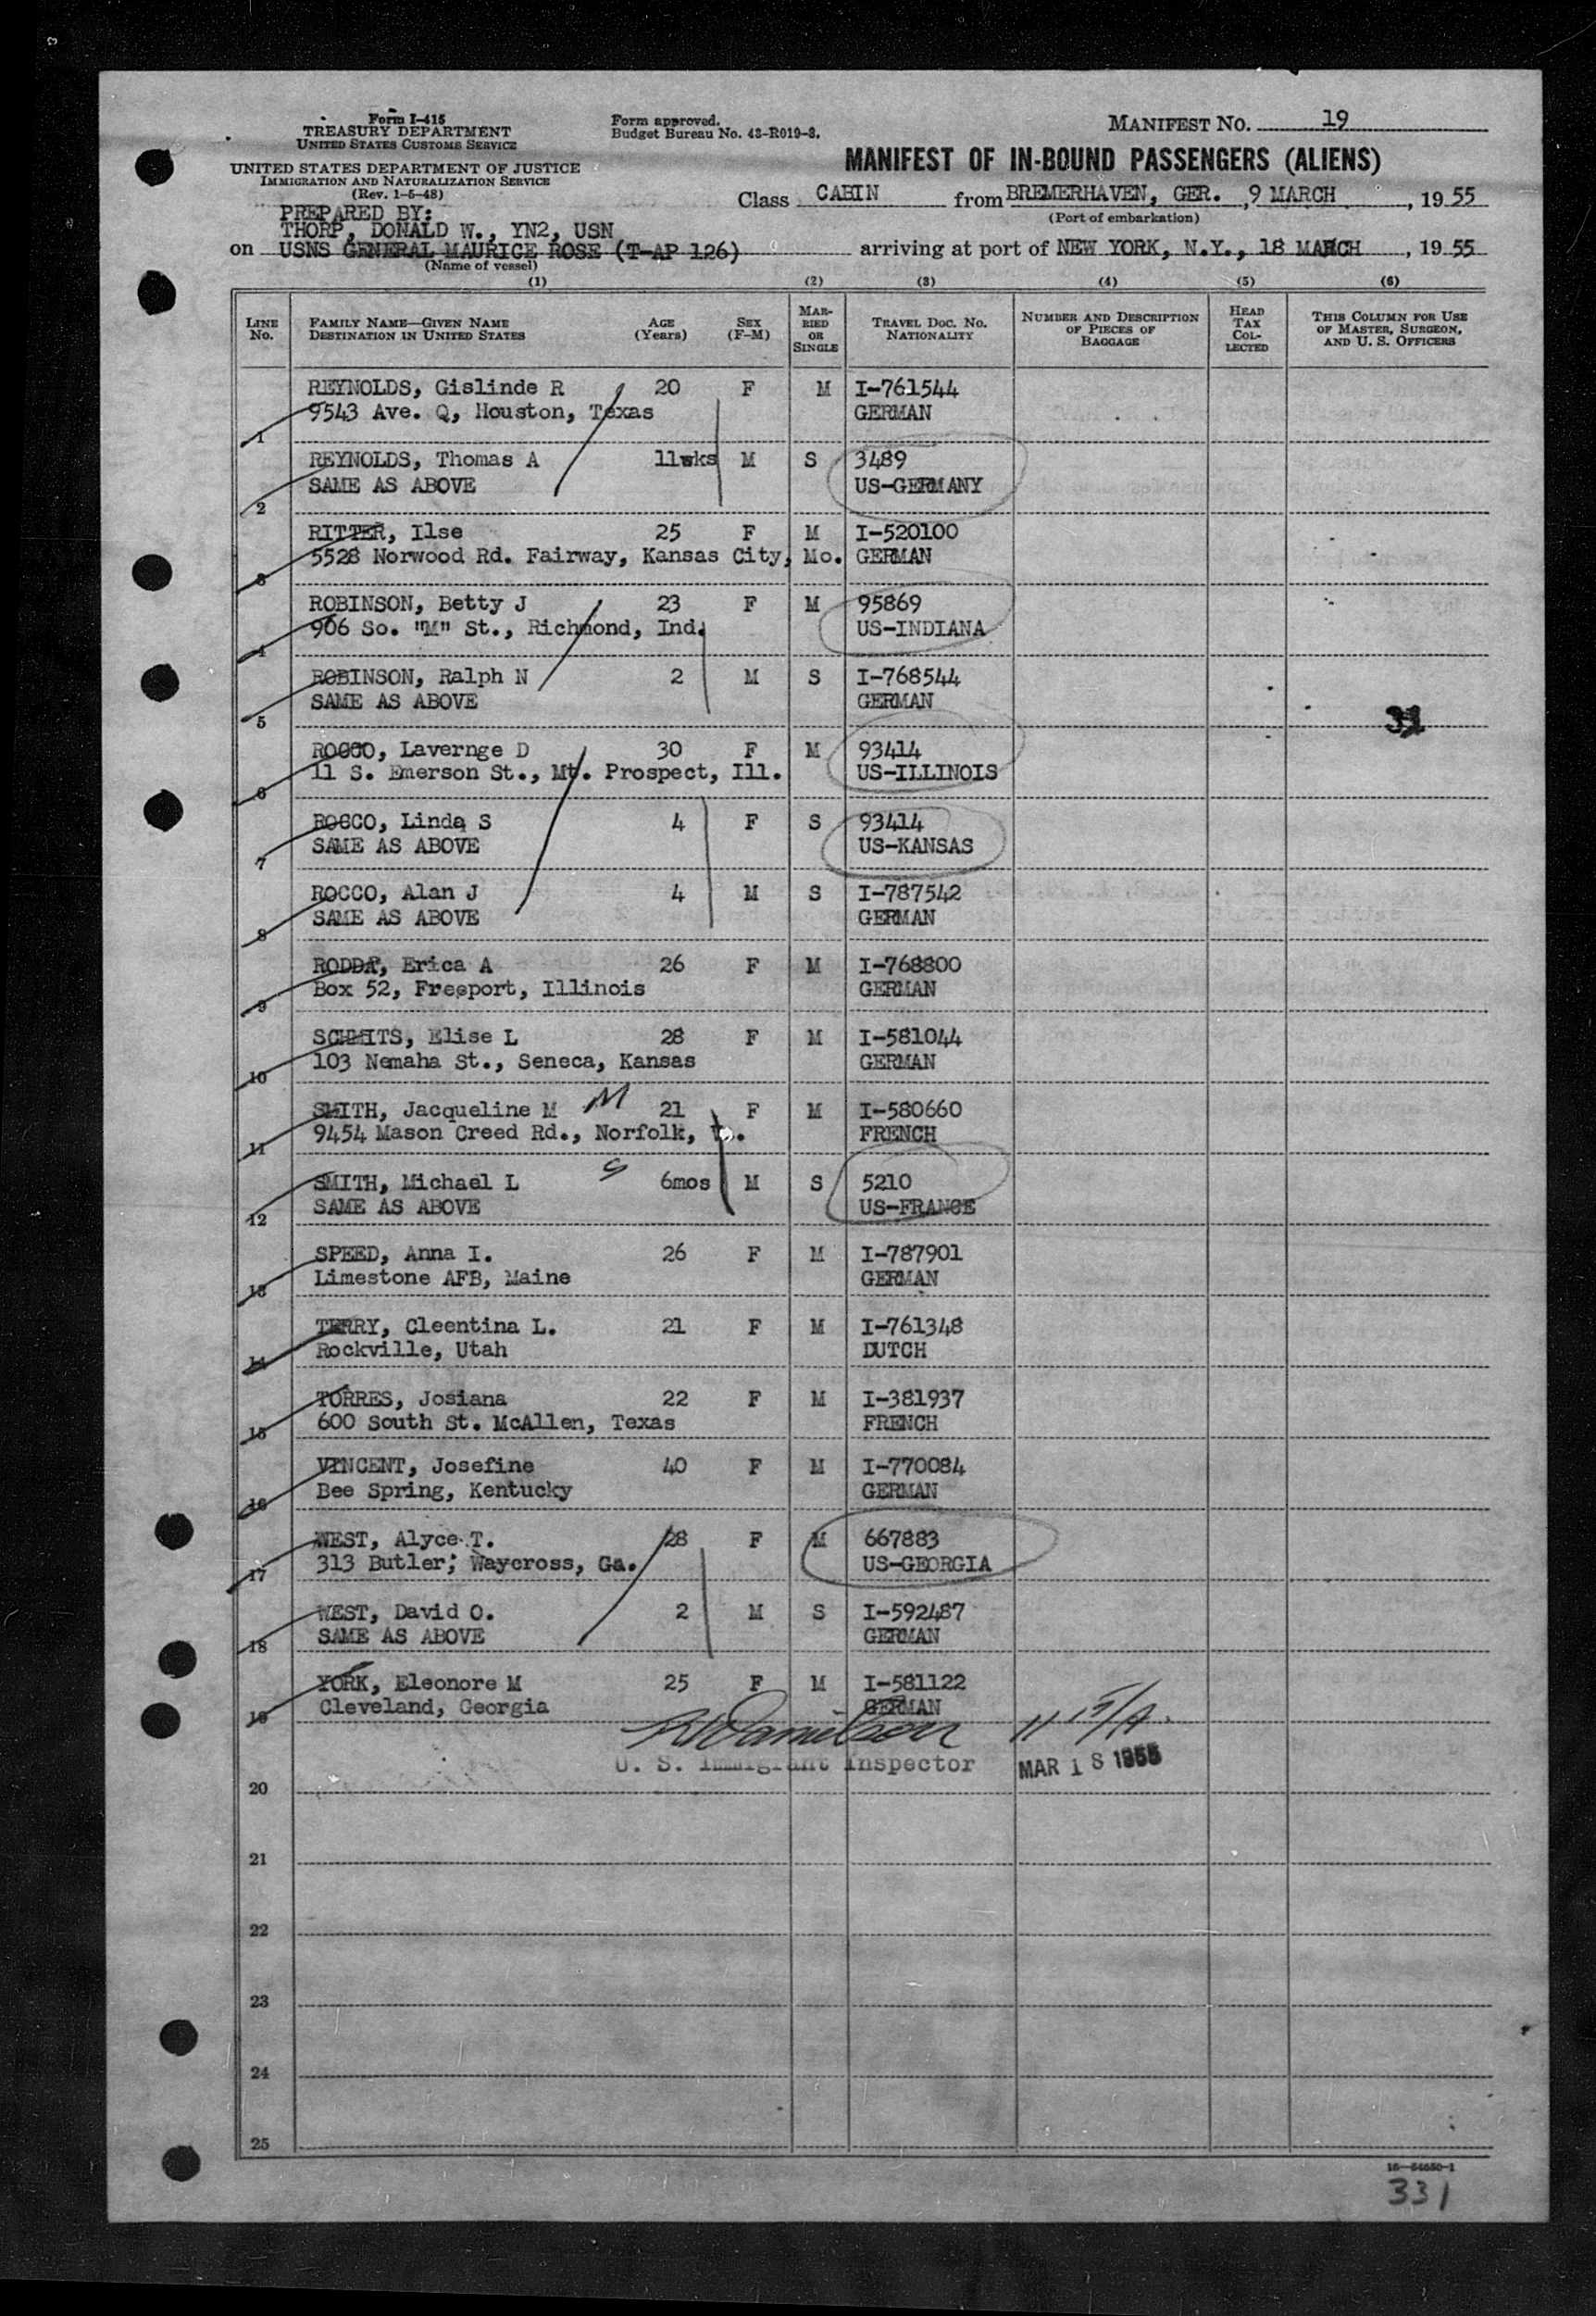 Form I-415
TREASURY DEPARTMENT
UNITED STATES CUSTOMS SERVICE
UNITED STATES DEPARTMENT OF JUSTICE
IMMIGRATION AND NATURALIZATION SERVICE
(Rev. 1-5-48)
Form approved.
Budget Bureau No. 43-R019-3.
MANIFEST NO. 19
MANIFEST OF IN-BOUND PASSENGERS (ALIENS)
Class CABIN from BREMERHAVEN, GER. , 9 MARCH , 19 55
(Port of embarkation)
PREPARED BY:
THORP, DONALD W., YN2, USN
on USNS GENERAL MAURICE ROSE (T-AP 126) arriving at port of NEW YORK, N.Y., 18 MARCH , 19 55
(Name of vessel)
(1) (2) (3) (4) (5) (6)
LINE NO. FAMILY NAME—GIVEN NAME DESTINATION IN UNITED STATES AGE (Years) SEX (F-M) MARRIED OR SINGLE TRAVEL DOC. NO. NATIONALITY NUMBER AND DESCRIPTION OF PIECES OF BAGGAGE HEAD TAX COLLECTED THIS COLUMN FOR USE OF MASTER, SURGEON, AND U. S. OFFICERS
REYNOLDS, Gislinde R 20 F M I-761544
1 9543 Ave. Q, Houston, Texas GERMAN
REYNOLDS, Thomas A 11wks M S 3489
2 SAME AS ABOVE US-GERMANY
RITTER, Ilse 25 F M I-520100
3 5528 Norwood Rd. Fairway, Kansas City, Mo. GERMAN
ROBINSON, Betty J 23 F M 95869
4 906 So. "M" St., Richmond, Ind. US-INDIANA
ROBINSON, Ralph N 2 M S I-768544
5 SAME AS ABOVE GERMAN
ROCCO, Lavernge D 30 F M 93414
6 11 S. Emerson St., Mt. Prospect, Ill. US-ILLINOIS
ROCCO, Linda S 4 F S 93414
7 SAME AS ABOVE US-KANSAS
ROCCO, Alan J 4 M S I-787542
8 SAME AS ABOVE GERMAN
RODDA, Erica A 26 F M I-768800
9 Box 52, Freeport, Illinois GERMAN
Elise L 28 F M I-581044
10 103 Nemaha St., Seneca, Kansas GERMAN
SMITH, Jacqueline M M 21 F M I-580660
11 9454 Mason Creed Rd., Norfolk, FRENCH
SMITH, Michael L S 6mos M S 5210
12 SAME AS ABOVE US-FRANCE
SPEED, Anna I. 26 F M I-787901
13 Limestone AFB, Maine GERMAN
TERRY, Cleentina L. 21 F M I-761348
14 Rockville, Utah DUTCH
TORRES, Josiana 22 F M I-381937
15 600 South St. McAllen, Texas FRENCH
VINCENT, Josefine 40 F M I-770084
16 Bee Spring, Kentucky GERMAN
WEST, Alyce T. 28 F M 667883
17 313 Butler; Waycross, Ga. US-GEORGIA
WEST, David O. 2 M S I-592487
18 SAME AS ABOVE GERMAN
YORK, Eleonore M 25 F M I-581122
19 Cleveland, Georgia GERMAN
U. S. Immigrant Inspector MAR 18 1955
20
21
22
23
24
25
331